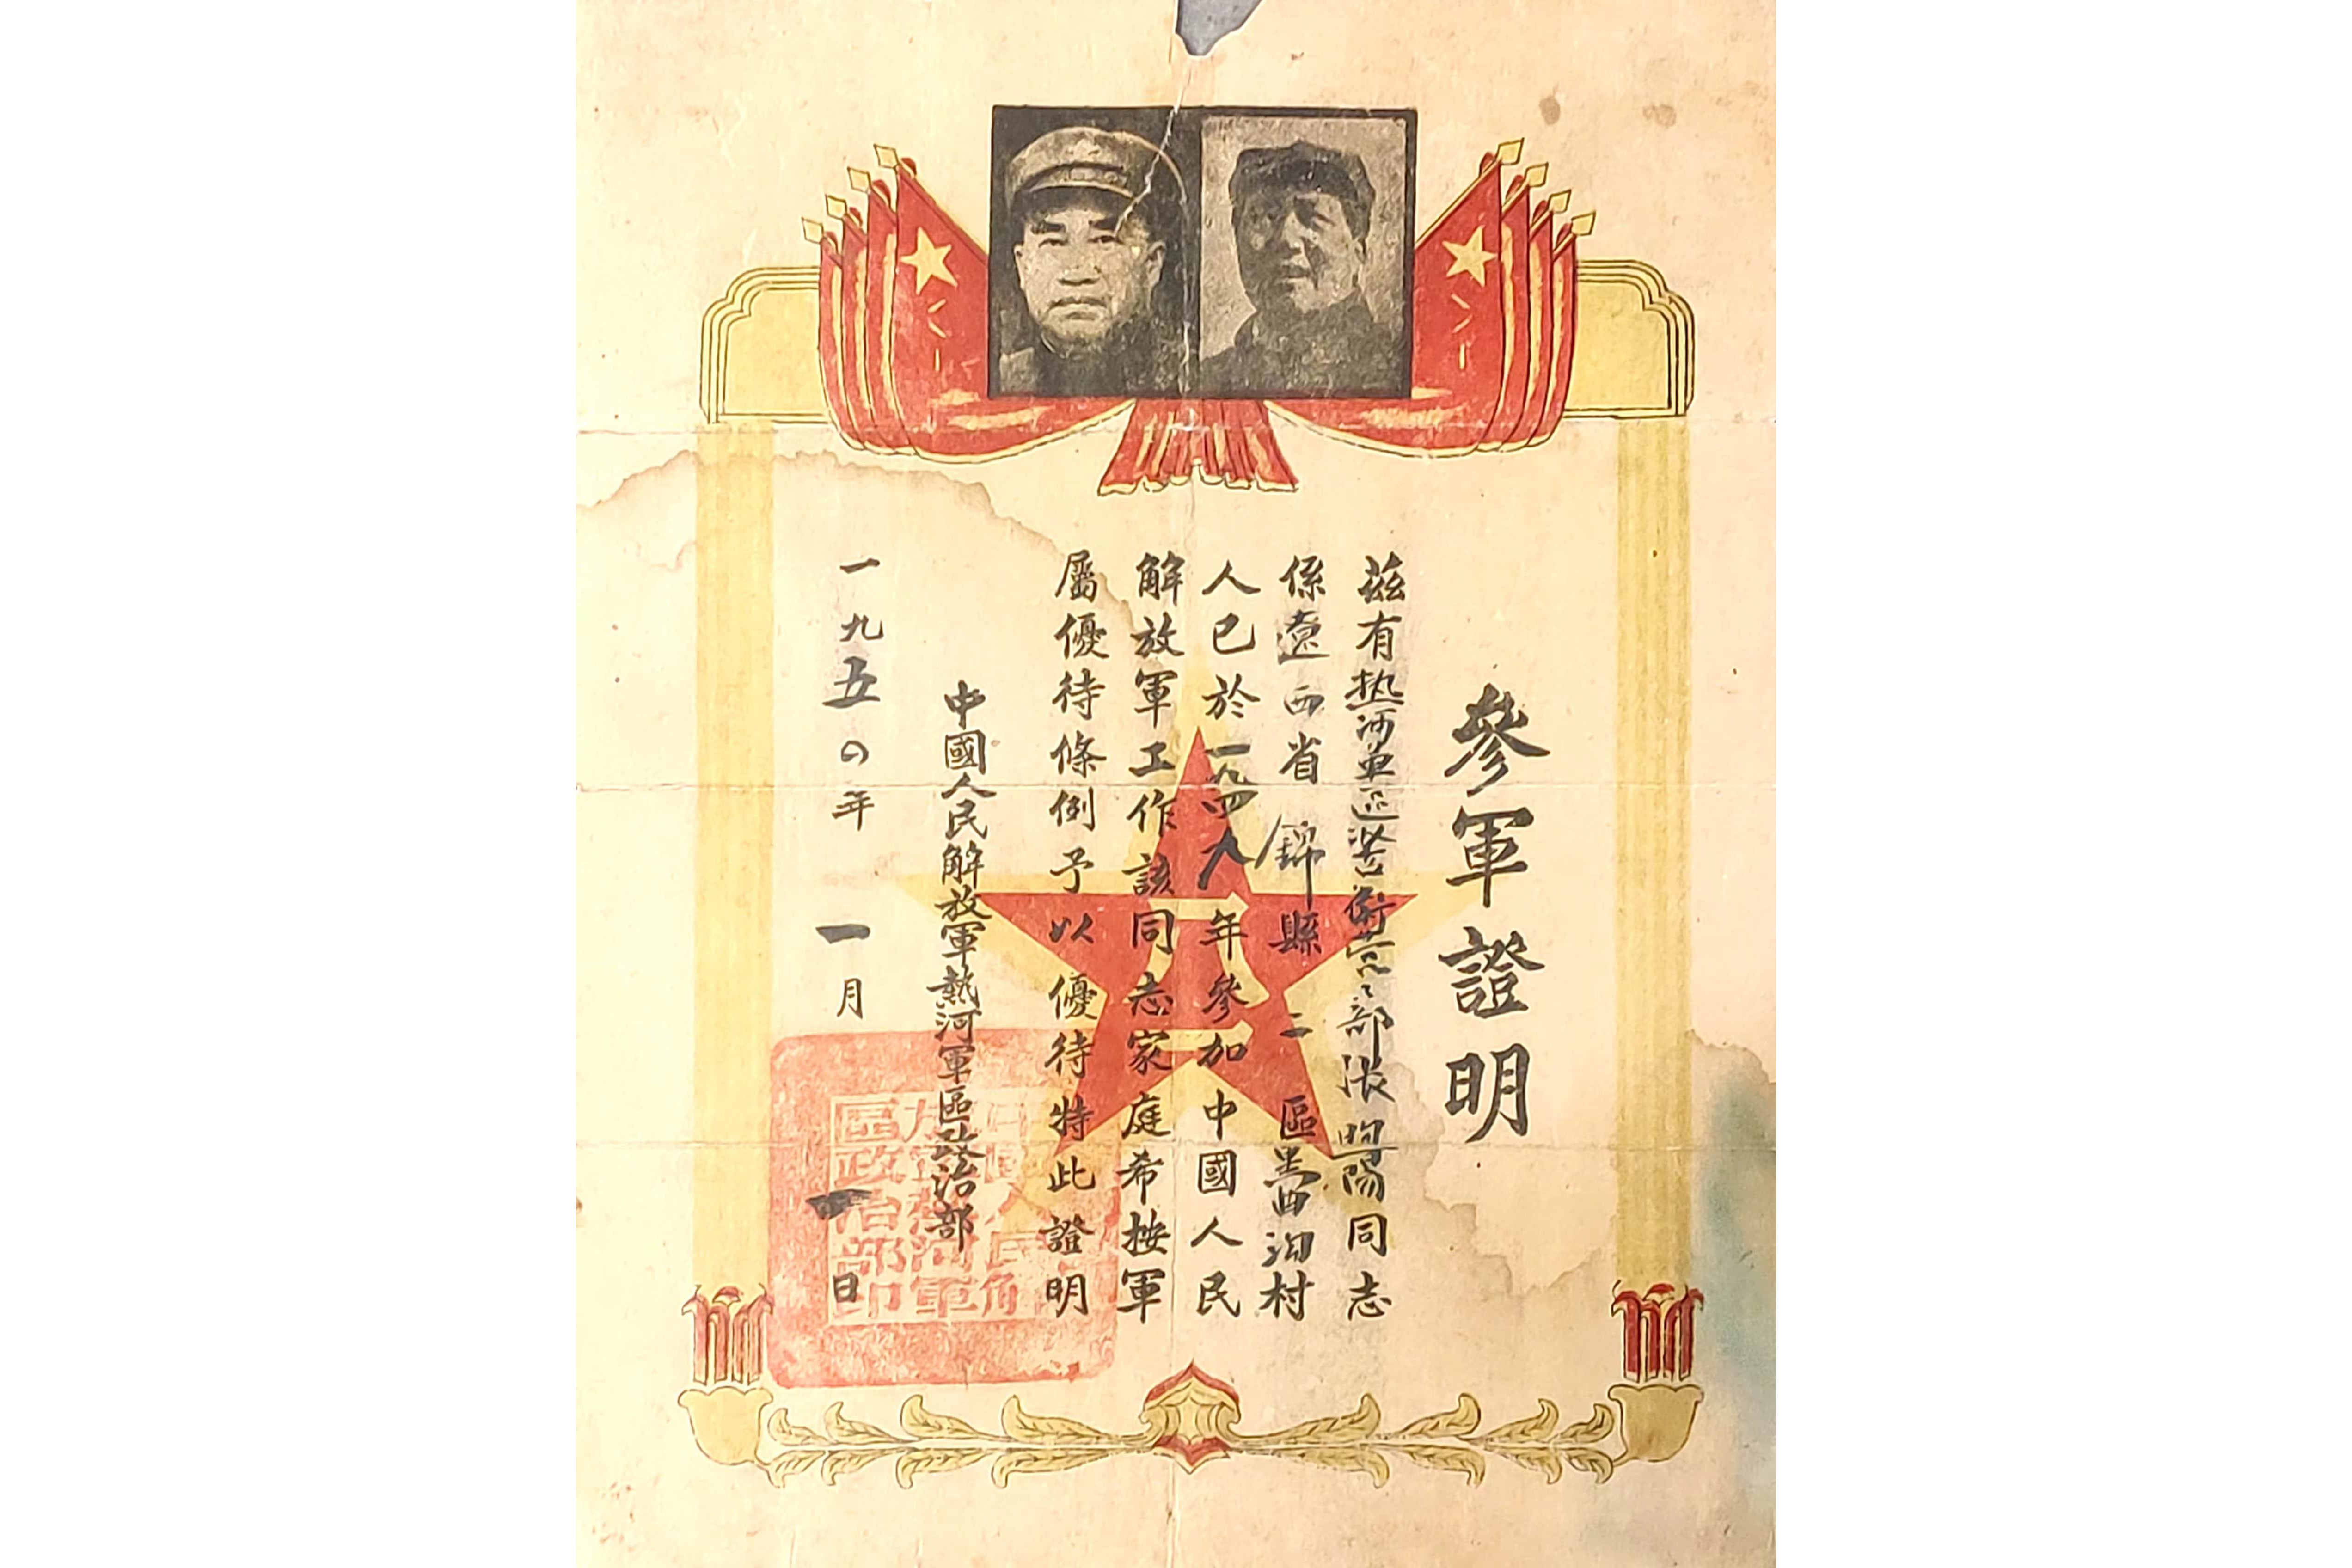 參軍證明
茲有热河軍区警衛营二部張 陽同志
係遼西省錦縣二區 西沟村
人已於一九四八年參加中國人民
解放軍工作該同志家庭希按軍
屬優待條例予以優待特此證明
中國人民解放軍熱河軍區政治部
一九五〇年一月一日
中國人民解
放軍熱河軍
區政治部印
八一
八一
八一